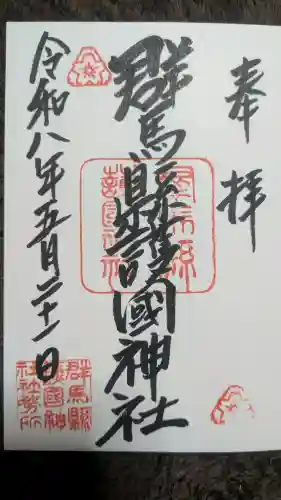 奉拝
群馬縣護國神社
令和八年五月二十一日
群馬縣
護國神
社社務所